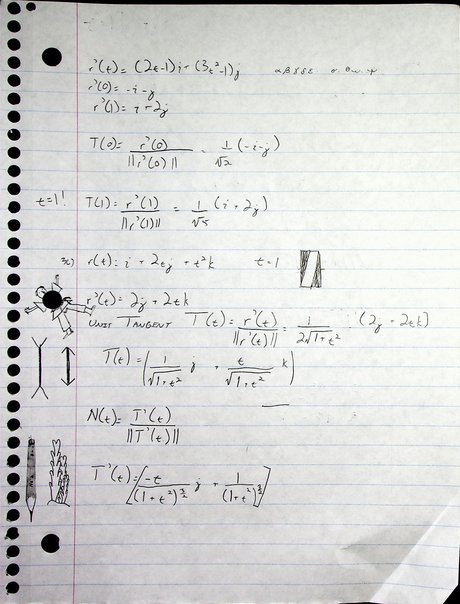 r'(t) = (2t-1)i + (3t²-1)j αβγδε σ. θω. φ
r'(0) = -i - j
r'(1) = i + 2j
T(0) = r'(0) / ||r'(0)|| = 1/√2 (-i-j)
t=1! T(1) = r'(1) / ||r'(1)|| = 1/√5 (i + 2j)
r(t) = i + 2tj + t²k t=1
r'(t) = 2j + 2tk
UNIT TANGENT T(t) = r'(t) / ||r'(t)|| = 1 / 2√1+t² (2j + 2tk)
T(t) = (1 / √1+t² j + t / √1+t² k)
N(t) = T'(t) / ||T'(t)||
T'(t) = [-t / (1+t²)^3/2 j + 1 / (1+t²)^3/2]